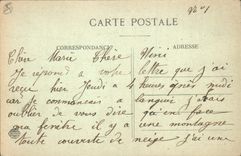 92-1
CARTE POSTALE
CORRESPONDANCE
ADRESSE
Chère Marie Thérèse
Je repond a votre lettre que j'ai
reçu hier Jeudi a 4 heures après midi
car je commençais a languir j'avais
oublier de vous dire j'ai en face
ma fenêtre il y a une montagne
toute couverte de neige j'ai une